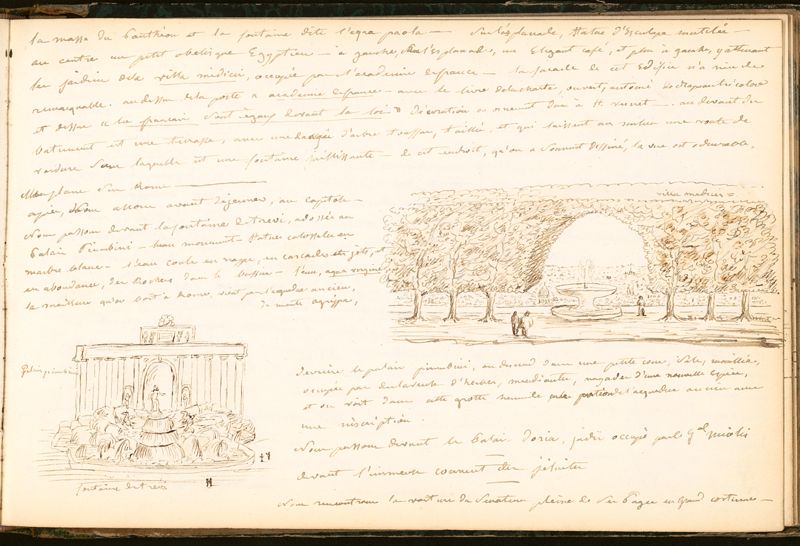 la masse du Panthéon et la fontaine dite l'eqra paola — sur l'esplanade, statue d'Esculape mutilée —
au centre un petit obelisque Egyptien — à gauche, sur l'esplanade, un Elegant café, et plus à gauche, attenant
les jardins de la villa médicis, occupée par l'academie de france — la facade de cet Edifice n'a rien de
remarquable. au dessus de la porte academie de france — avec le livre de la charte, ouvert, autour le drapeau tricolore
et dessus : les français sont égaux devant la loi décoration au devant du
batiment est une terrasse, avec une d'arbres touffus, taillés et qui laissent au milieu une voute de
verdure sous laquelle est une fontaine jaillissante — de cet endroit, qu'on a souvent dessiné, la vue est admirable,
plane sur Rome —
après, nous allons avant déjeuner, au capitole —
nous passons devant la fontaine de trevi, adossée au
palais Piombini — beau monument statue colossale en
marbre blanc — l'eau coule en nappe, en cascade et
en abondance, des Rochers dans le bassin — l'eau, aqua virginé
la meilleure qu'on boit à Rome, vient par l'aqueduc ancien,
de agrippa,
villa medicis =
Palais piombini
fontaine de trevi
derrière le palais piombini, on descend dans une petite cour, sale, mouillée,
occupée par des laveuses d'herbes, mendiantes, nayades d'une nouvelle Espèce,
et on voit dans cette grotte humide une portion de l'aqueduc ancien avec
une inscription.
nous passons devant le Palais Doria, jadis occupé par le Gal miolis
devant l'immense couvent des jésuites
nous rencontrons la voiture du Senateur pleine de ses Pages en grand costume —